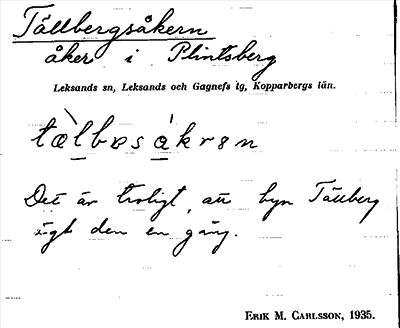 Tällbergsåkern
åker i Plintsberg
Leksands sn, Leksands och Gagnefs tg, Kopparbergs län.
tælbɐsåkrən
Det är troligt, att byn Tällberg
ägt den en gång.
ERIK M. CARLSSON, 1935.